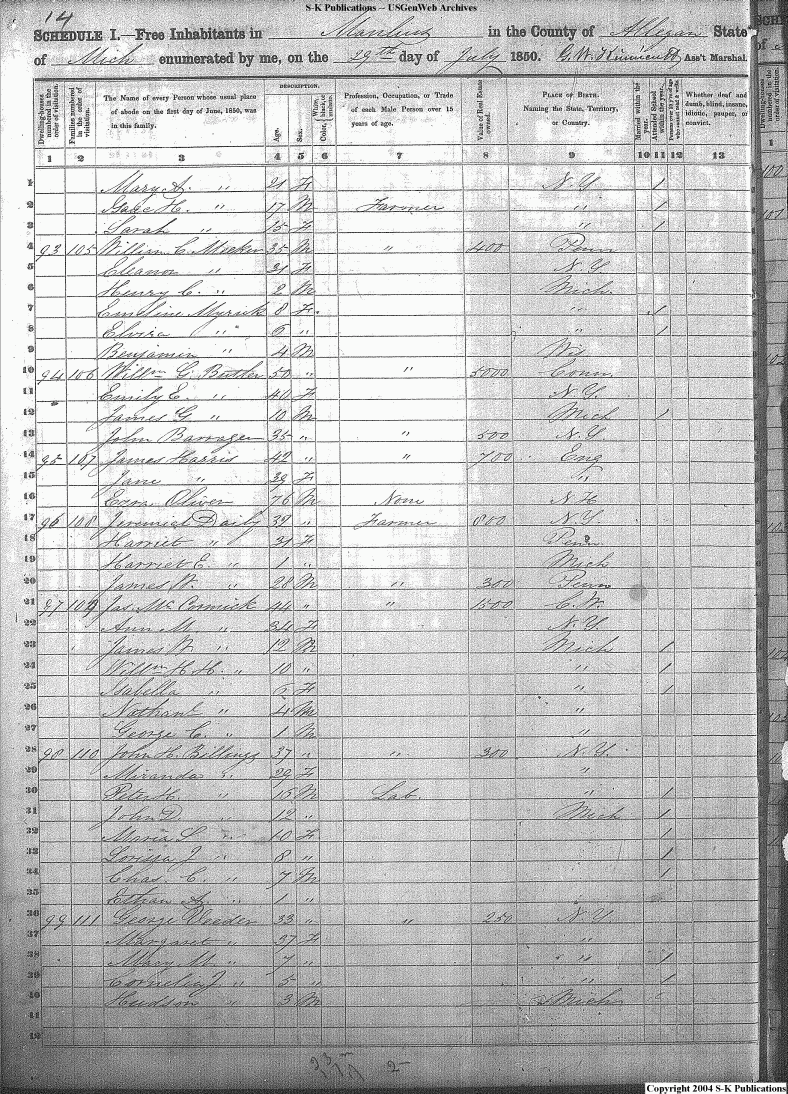 S-K Publications – USGenWeb Archives
14
SCHEDULE I.—Free Inhabitants in Manlius in the County of Allegan State
of Mich enumerated by me, on the 29th day of July 1850. G. W. Ass't Marshal.
Dwelling-houses numbered in the order of visitation.
Families numbered in the order of visitation.
The Name of every Person whose usual place of abode on the first day of June, 1850, was in this family.
DESCRIPTION.
Age.
Sex.
White, black, or mulatto.
Profession, Occupation, or Trade of each Male Person over 15 years of age.
Value of Real Estate owned.
PLACE OF BIRTH. Naming the State, Territory, or Country.
Married within the year.
Attended School within the year.
Whether deaf and dumb, blind, insane, idiotic, pauper, or convict.
1 2 3 4 5 6 7 8 9 10 11 12 13
1 Mary A. " 21 F N.Y. 1
2 Isaac H. " 17 M Farmer " 1
3 Sarah " 15 F " 1
4 93 105 William C. 35 M " 400 Penn
5 Eleanor " 21 F N.Y.
6 Henry C. " 2 M Mich
7 Emeline Myrick 8 F " 1
8 Elvira " 6 " " 1
9 Benjamin " 4 M Wis
10 94 106 Willm G. Butler 50 " " 5000 Conn.
11 Emily E. " 40 F N.Y.
12 James G. " 10 M Mich 1
13 John Barragen 35 " " 500 N.Y.
14 95 107 James Harris 42 " " 700 Eng
15 Jane " 39 F "
16 Oliver 76 M None N.H.
17 96 108 Jeremiah Daily 39 " Farmer 800 N.Y.
18 Harriet " 31 F Penn
19 Harriet E. " 1 " Mich
20 James W. " 28 M " 300 Penn
21 97 109 Jas. McCormick 44 " " 1500 C.W.
22 Ann M. " 34 F N.Y.
23 James W. " 12 M Mich 1
24 Willm H. H. " 10 " " 1
25 Isabella " 6 F " 1
26 Nathanl " 4 M "
27 George C. " 1 M "
28 98 110 John H. Billings 37 " " 300 N.Y.
29 Miranda " 29 F "
30 Peter H. " 15 M Lab. " 1
31 John D. " 12 " Mich 1
32 Maria S. " 10 F 1
33 Lorissa J. " 8 " 1
34 Chas. C. " 7 M 1
35 Ethan A. " 1 "
36 99 111 George Veeder 33 " " 250 N.Y.
37 Margaret " 37 F "
38 Mary M. " 7 " " 1
39 Cornelia J. " 5 " " 1
40 Hudson " 3 M Mich
41
42
Copyright 2004 S-K Publications